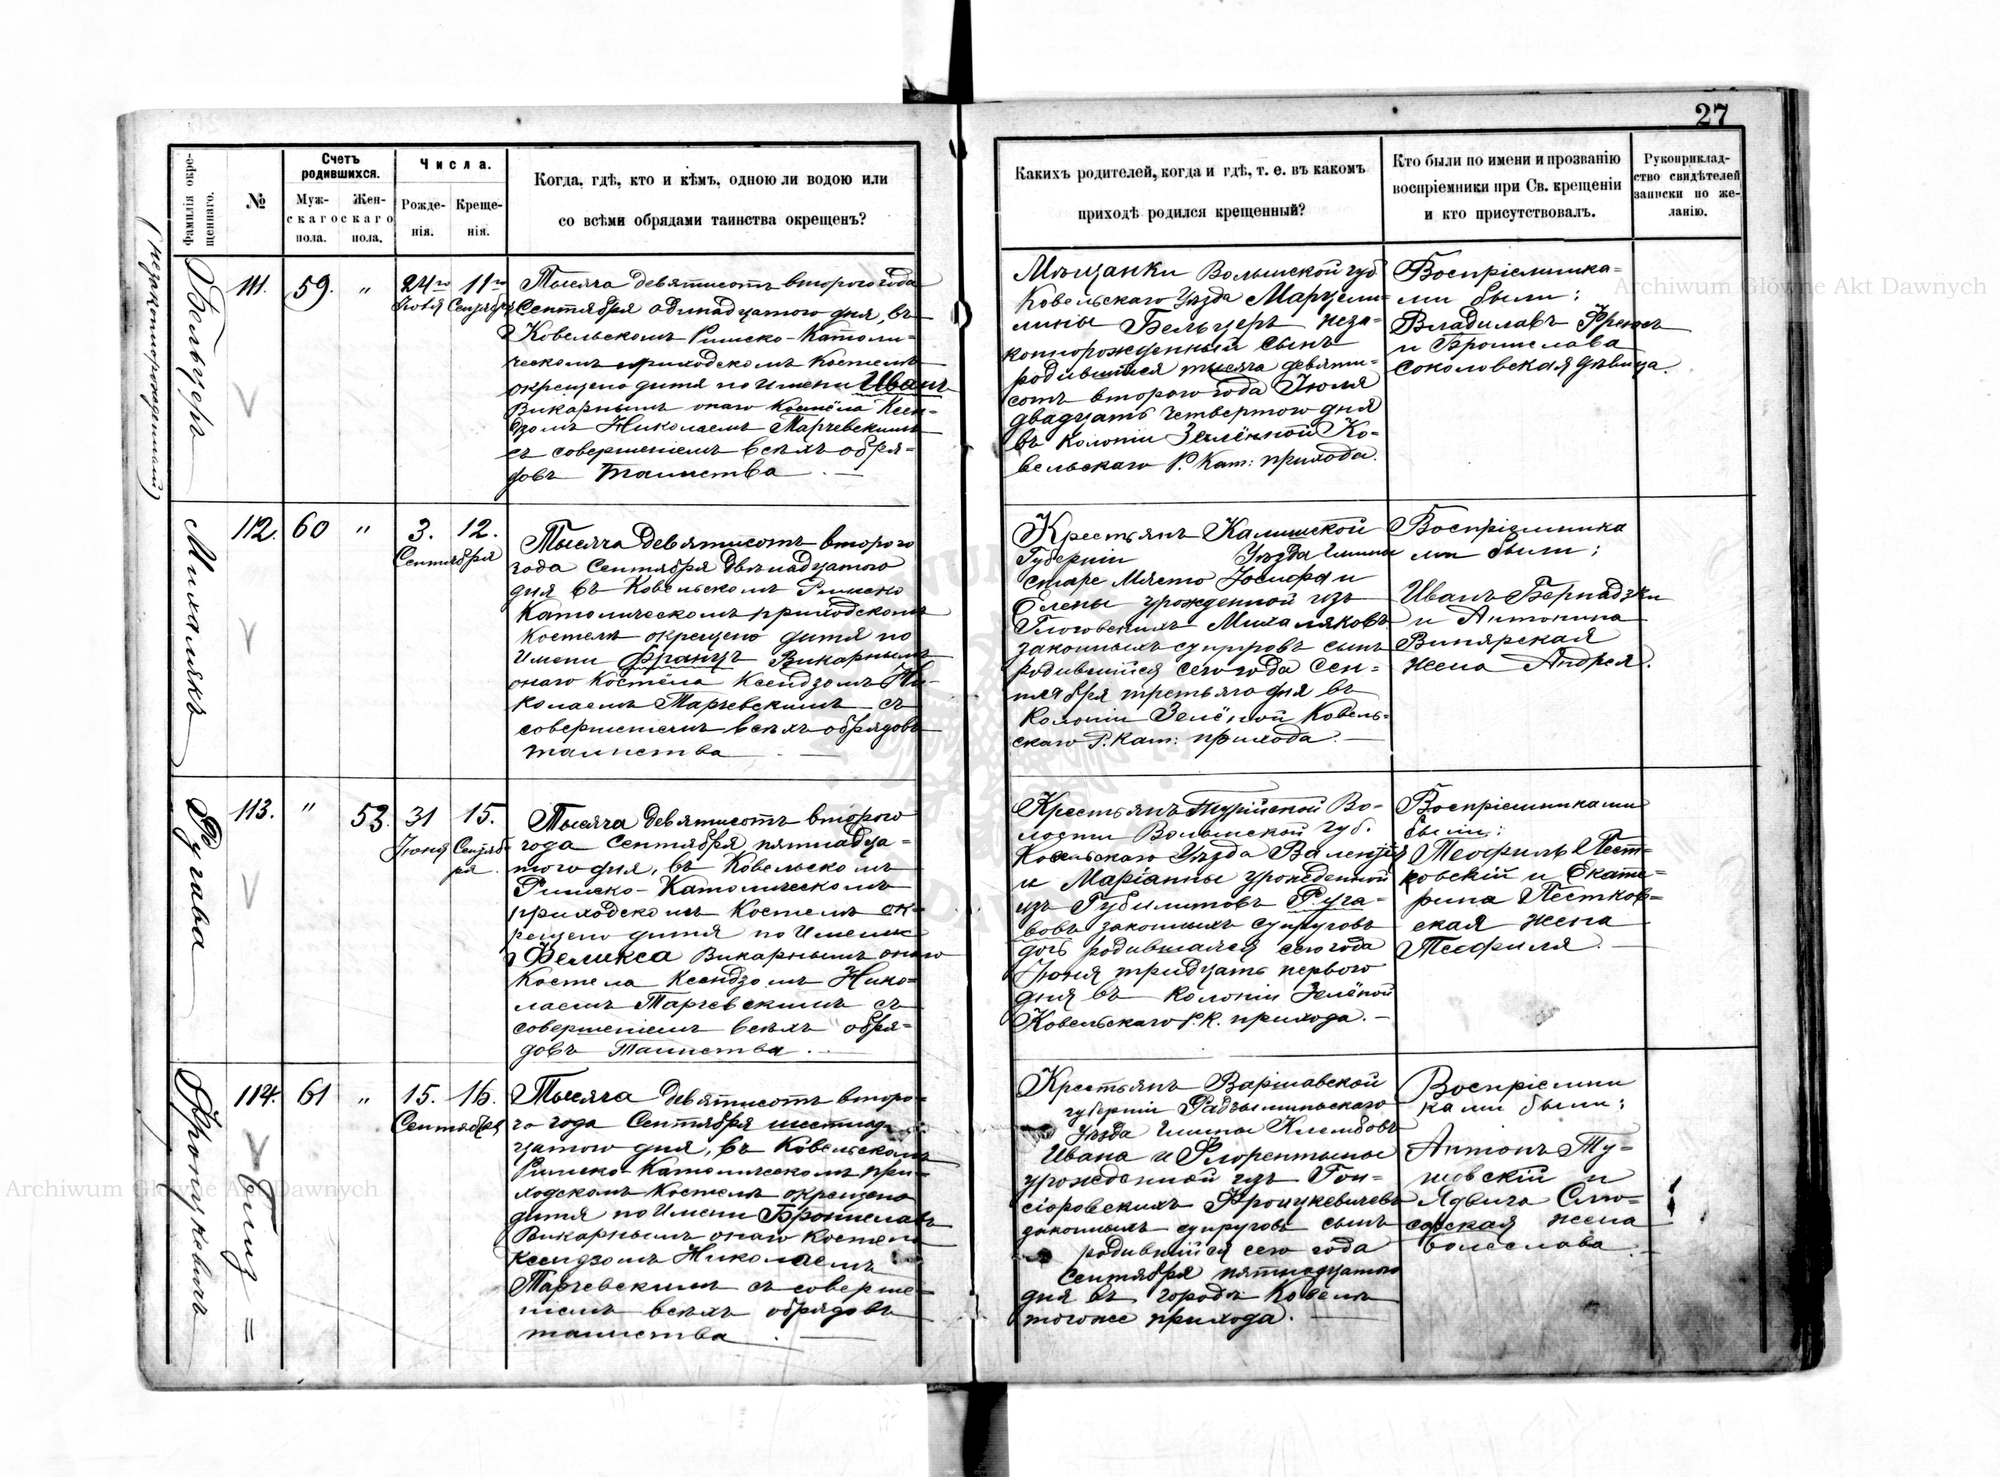 27
Фамилія окре-
щеннаго.
№
Счетъ
родившихся.
Муж-
скаго
пола.
Жен-
скаго
пола.
Числа.
Рожде-
нія.
Креще-
нія.
Когда, гдѣ, кто и кѣмъ, одною ли водою или
со всѣми обрядами таинства окрещенъ?
Какихъ родителей, когда и гдѣ, т. е. въ какомъ
приходѣ родился крещенный?
Кто были по имени и прозванію
воспріемники при Св. крещеніи
и кто присутствовалъ.
Рукоприклад-
ство свидѣтелей
записки по же-
ланію.
Бельцеръ
(незаконнорожденный)
111.
59.
"
24го
Іюля
11го
Сентября
Тысяча девятисотъ второго года
Сентября одинадцатого дня, въ
Ковельскомъ Римско-Католи-
ческомъ приходскомъ костелѣ
окрещено дитя по Имени Иванъ
Викарнымъ онаго Костёла Ксен-
дзомъ Николаемъ Марчевскимъ
съ совершеніемъ всѣхъ обря-
довъ Таинства. —
Мѣщанки Волынской губ
Ковельскаго Уѣзда Марцели-
лины Бельцеръ неза-
коннорожденный сынъ
родившійся тысяча девяти-
сотъ второго года Іюля
двадцать четвертого дня
въ Колоніи Зелённой Ко-
вельскаго Р. Кат: прихода.
Воспріемника-
ми были:
Владиславъ
и Бронислава
Соколовская дѣвица.
Михалякъ
112.
60
"
3.
12.
Сентября
Тысяча девятисотъ второго
года Сентября двѣнадцатого
дня въ Ковельскомъ Римско
Католическомъ приходскомъ
Костелѣ окрещено дитя по
Имени Францъ Викарнымъ
онаго Костёла Ксендзомъ Ни-
колаемъ Марчевскимъ съ
совершеніемъ всѣхъ обрядовъ
таинства. —
Крестьянъ Калишской
Губерніи Уѣзда Гмины
старе Място Іосифа и
Елены урожденной изъ
Глоговскихъ Михаляковъ
законныхъ супруговъ сынъ
родившійся сего года Сен-
тября третьяго дня въ
Колоніи Зелёной Ковель-
скаго Р. Кат: прихода. —
Воспріемника
ми были:
Иванъ Бернадзки
и Антонина
Винярская
жена Андрея.
Ругава
113.
"
53.
31
Іюня
15.
Сентяб-
ря.
Тысяча девятисотъ второго
года Сентября пятнадца-
того дня, въ Ковельскомъ
Римско-Католическомъ
приходскомъ Костелѣ ок-
рещено дитя по Имени
Феликса Викарнымъ онаго
Костела Ксендзомъ Нико-
лаемъ Марчевскимъ съ
совершеніемъ всѣхъ обря-
довъ Таинства. —
Крестьянъ Турійской Во-
лости Волынской губ.
Ковельскаго Уѣзда
и Маріанны урожденной
изъ Руга-
вовъ законныхъ супруговъ
дочь родившаяся сего года
Іюня тридцать перваго
дня въ Колоніи Зелёной
Ковельскаго Р. К. прихода. —
Воспріемниками
были:
Теофиль Пест-
ковскій и Екате-
рина Пестков-
ская жена
Теофиля. —
Фронцкевичъ
114.
Близ =
61
"
15.
16.
Сентября
Тысяча девятисотъ второ-
го года Сентября шестнад-
цатого дня, въ Ковельскомъ
Римско-Католическомъ при-
ходскомъ Костелѣ окрещено
дитя по Имени Брониславъ
Викарнымъ онаго Костела
Ксендзомъ Николаемъ
Марчевскимъ съ соверше-
ніемъ всѣхъ обрядовъ
таинства. —
Крестьянъ Варшавской
губерніи Радзыминьскаго
Уѣзда Гмины Клембовъ
Ивана и Флорентыны
урожденной изъ Гон-
сіоровскихъ Фронцкевичевъ
законныхъ супруговъ сынъ
родившійся сего года
Сентября пятнадцатого
дня въ городѣ Ковелѣ
тогоже прихода. —
Воспріемни
ками были:
Антонъ
и
Ядвига
жена
Болеслава. —
Archiwum Główne Akt Dawnych
Archiwum Główne Akt Dawnych